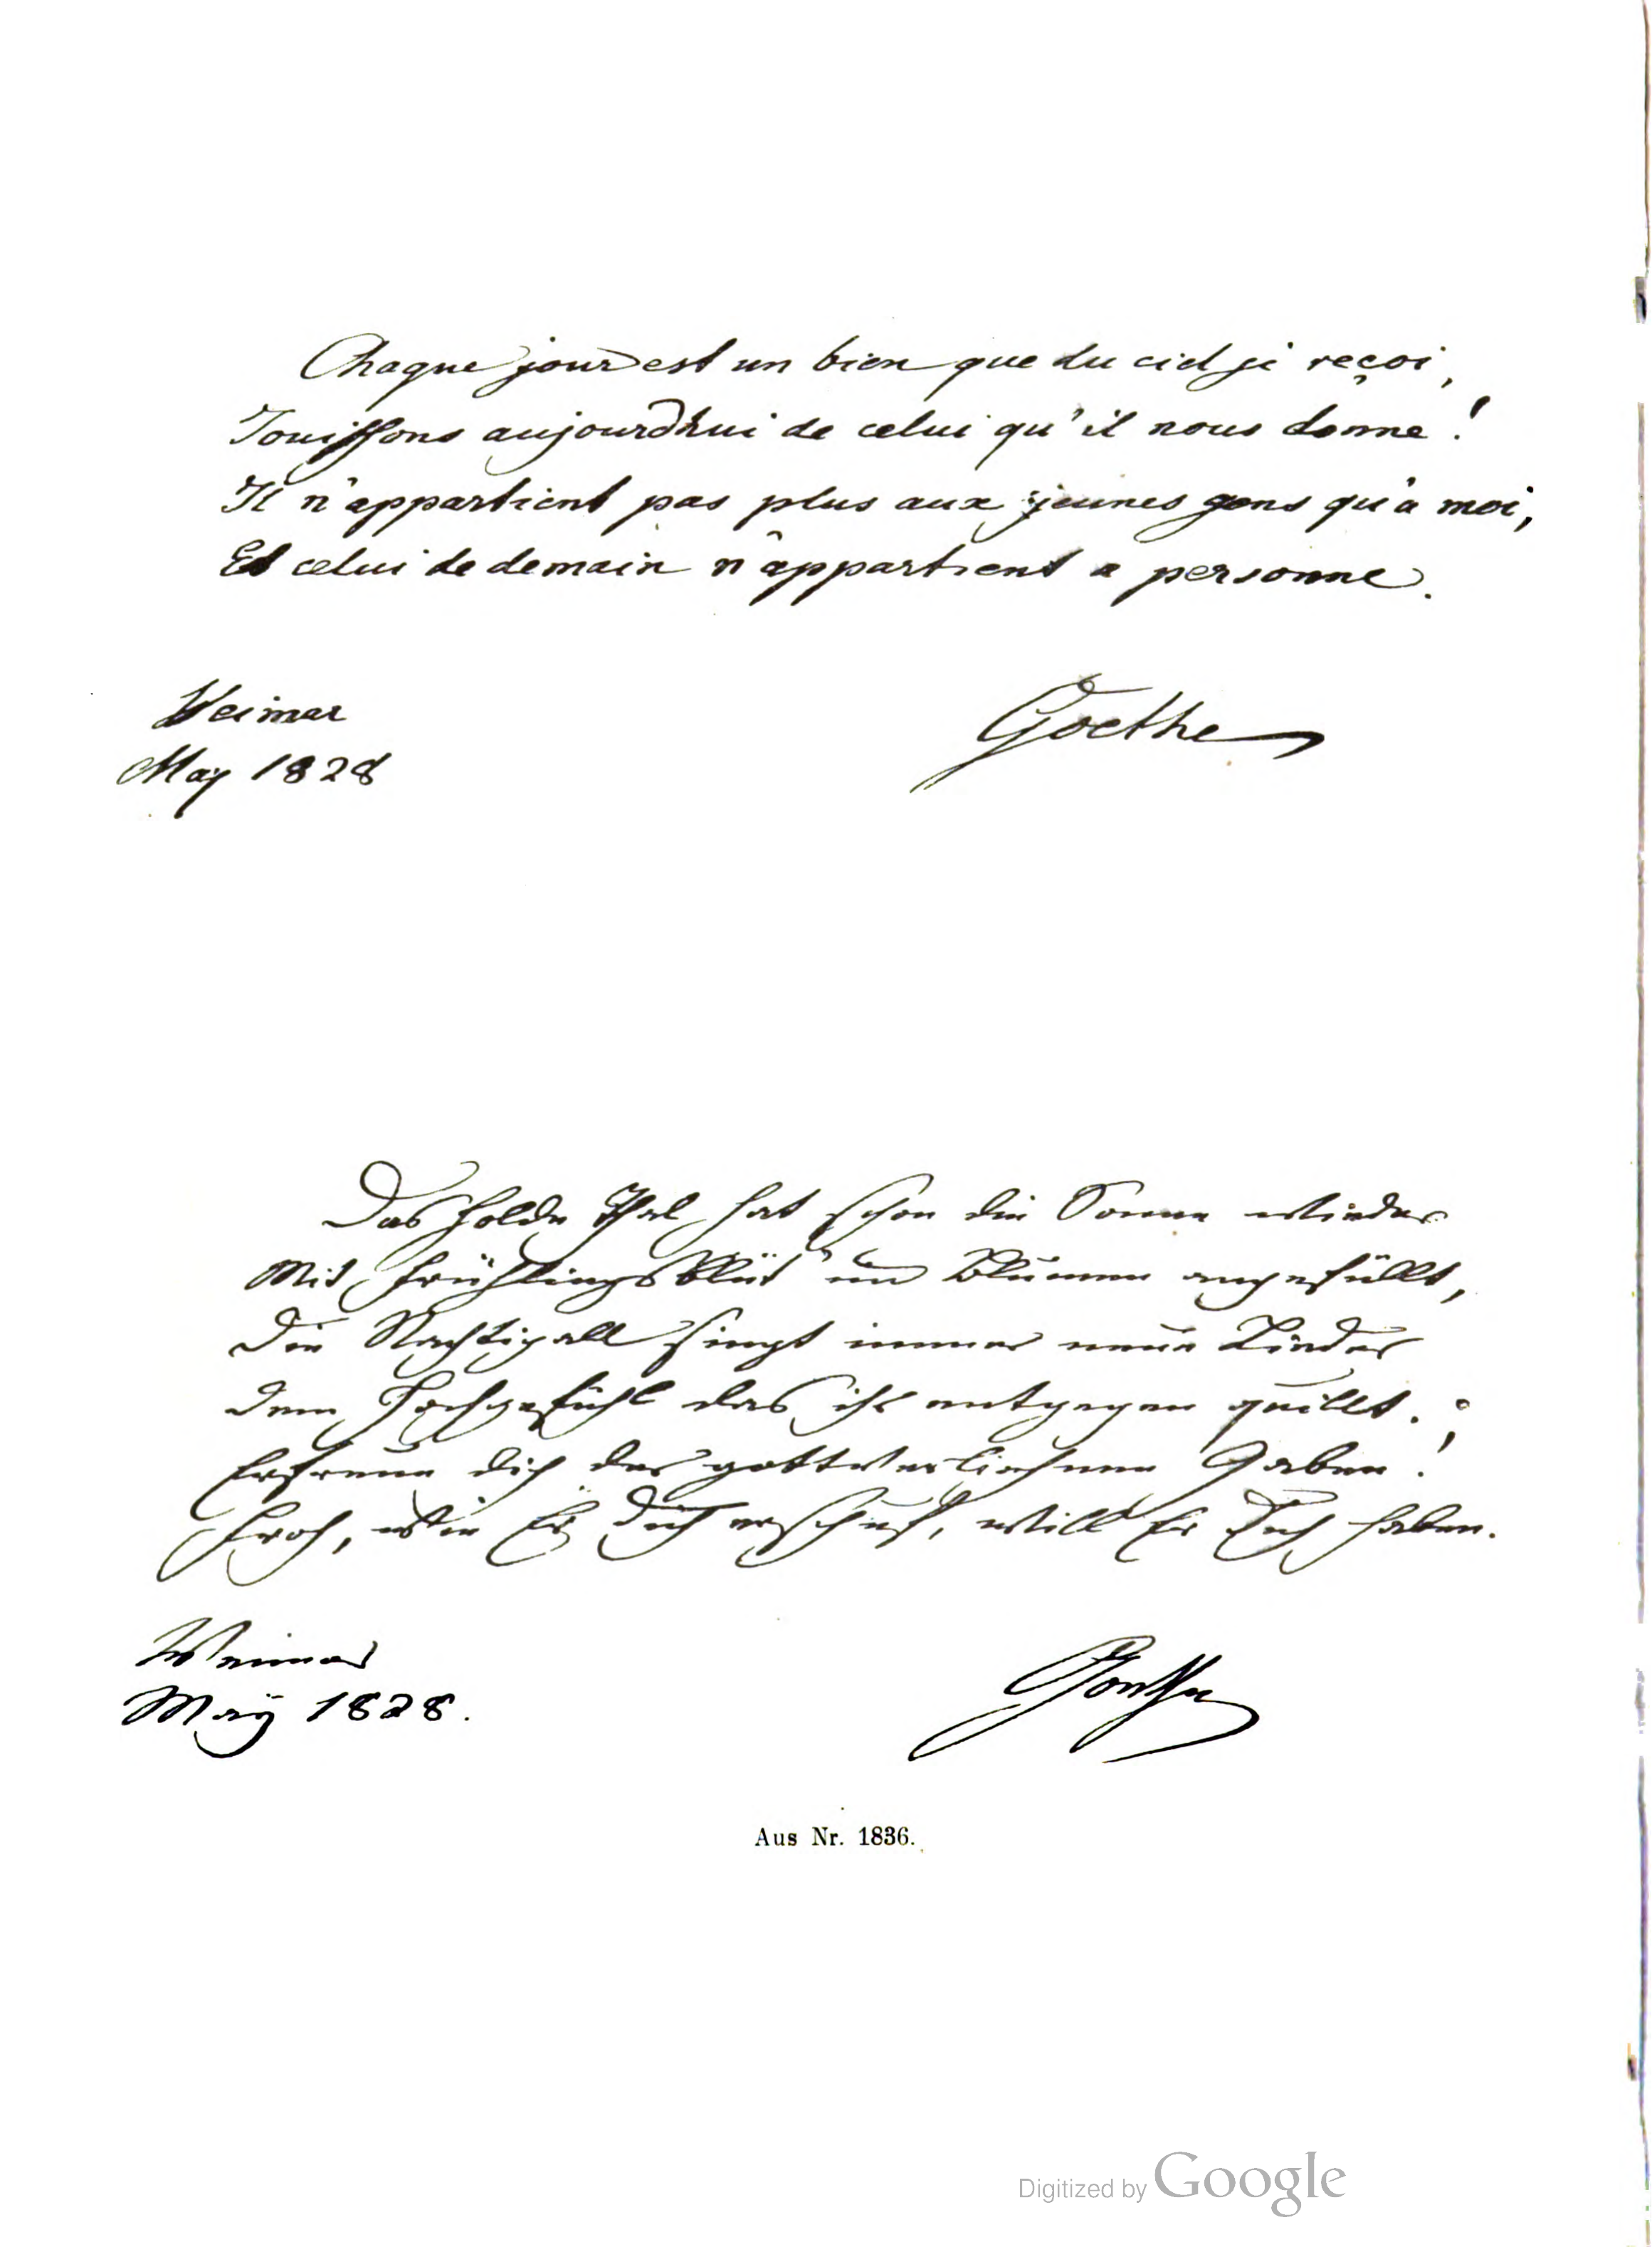 Chaque jour est un bien que du ciel je reçoi,
Jouissons aujourdhui de celui qu'il nous donne!
Il n'appartient pas plus aux jeunes gens qu'a moi,
Et celui de demain n'appartient a personne.
Weimar
May 1828
Goethe
Das holde Thal hat schon die Sonne wieder
Mit Frühlingsblüt' und Blumen angefüllt,
Die Nachtigall singt immer neue Lieder
Dem Hochgefühl das ihr entgegen quillt.;
Erfreue dich der gottverliehnen Gaben!
Froh, wie Er dich erschuf, will Er dich haben.
Weimar
May 1828.
Goethe
Aus Nr. 1836.
Digitized by Google